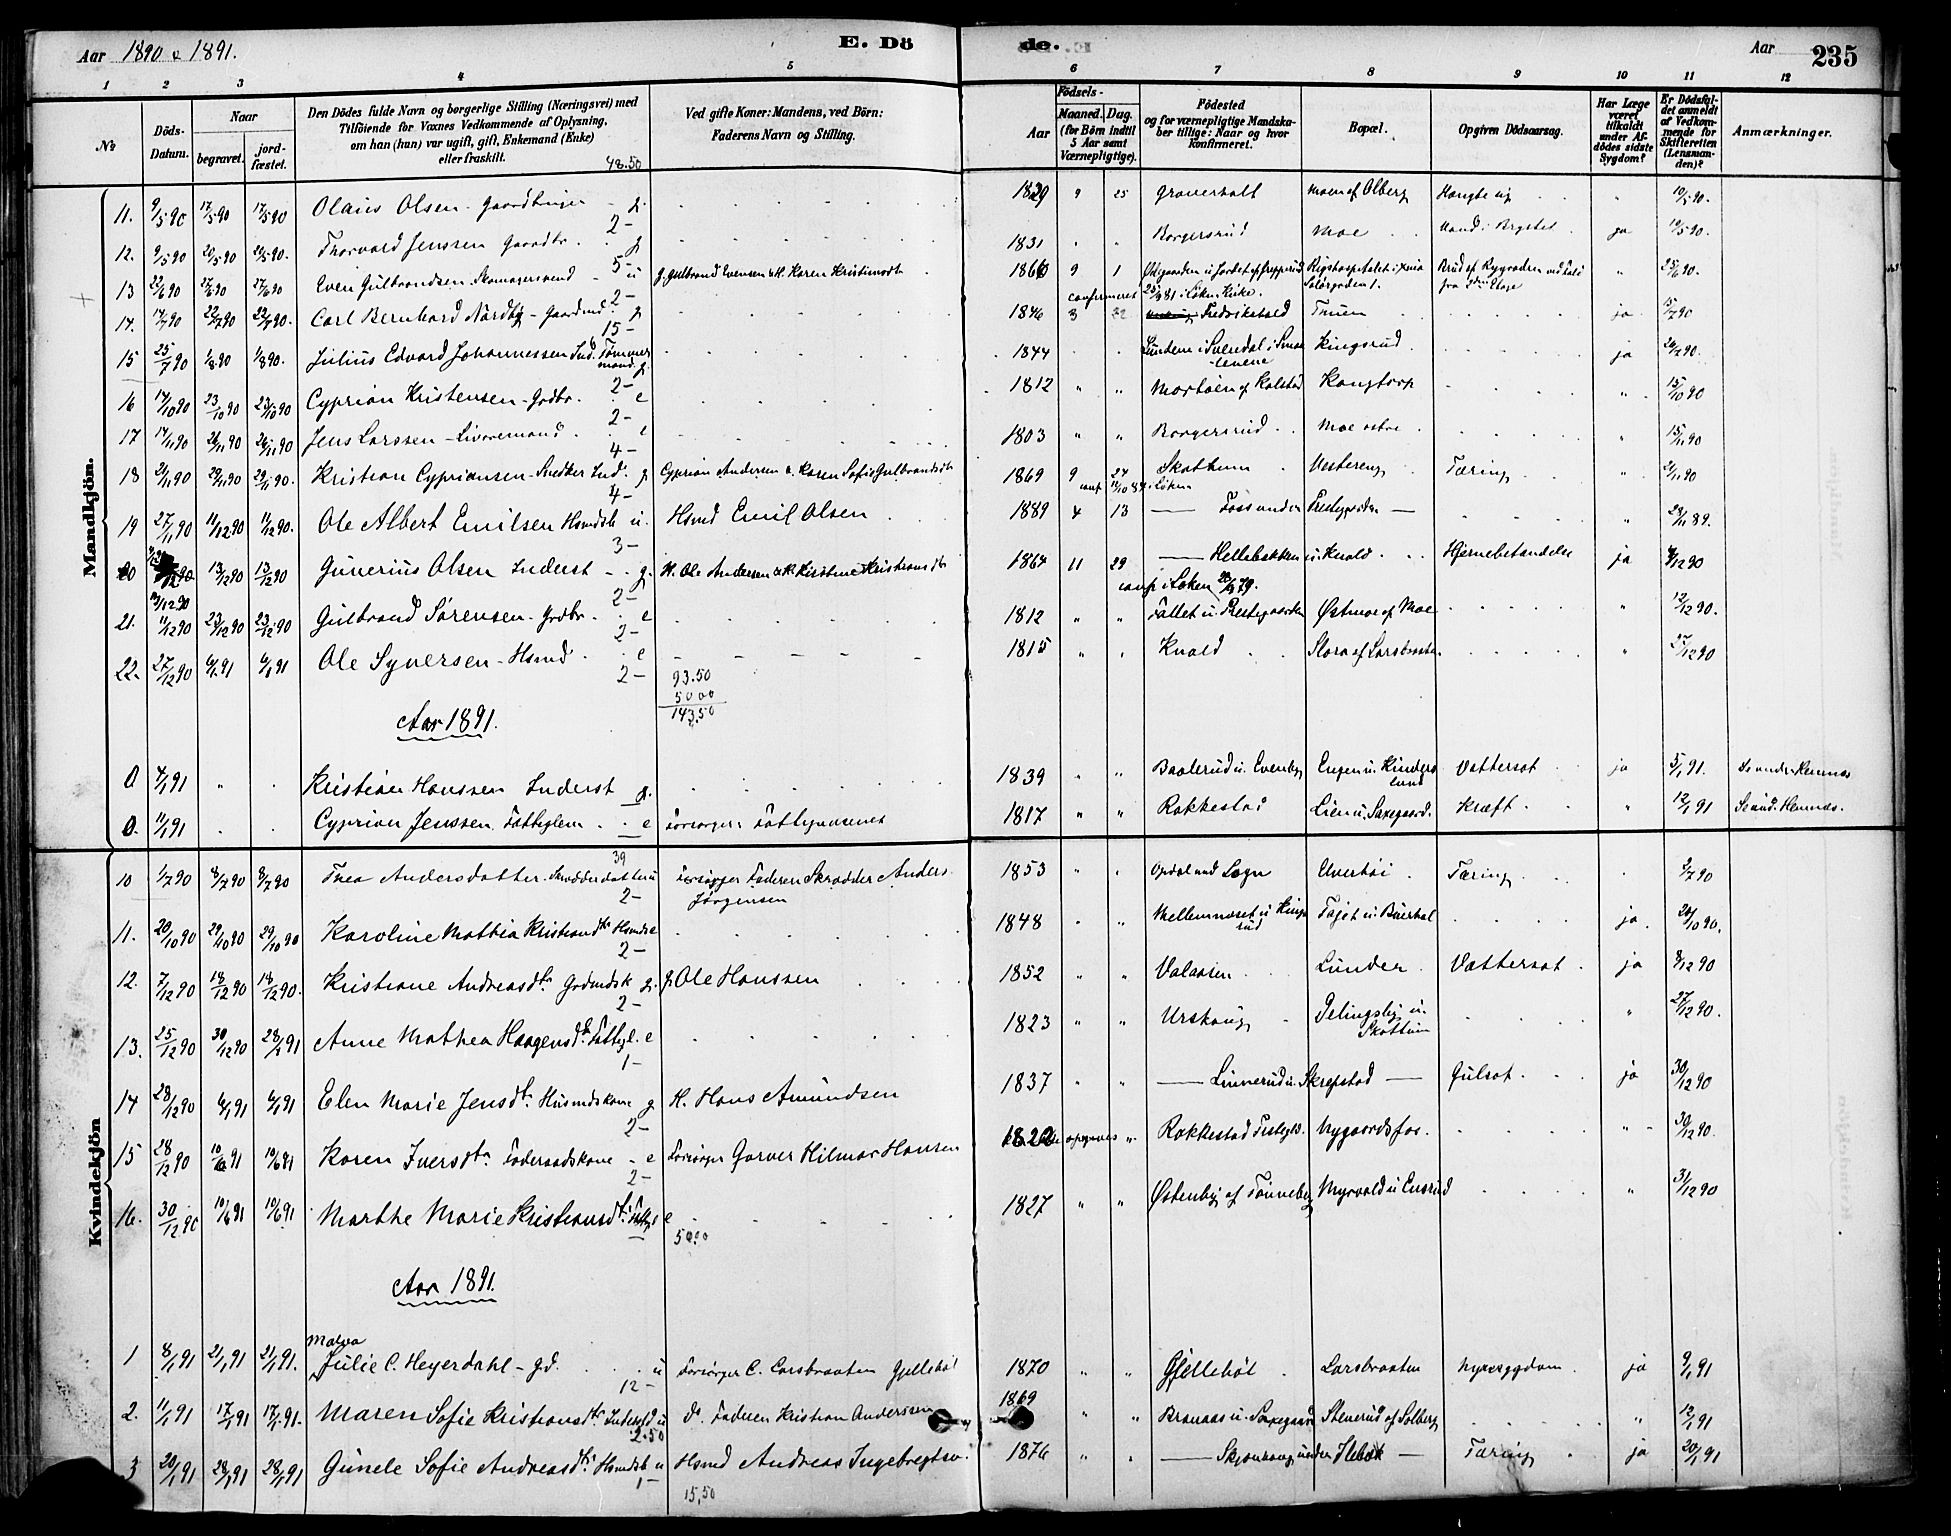 Aar 1890 & 1891.
E. Dö
de.
Aar
235
1 2 3 4 5 6 7 8 9 10 11 12
No
Döds-Datum.
Naar
begravet.
jord-fæstet.
Den Dödes fulde Navn og borgerlige Stilling (Næringsvei) med
Tilföiende for Voxnes Vedkommende af Oplysning,
om han (hun) var ugift, gift, Enkemand (Enke)
eller fraskilt.
48.50
Ved gifte Koner: Mandens, ved Börn:
Faderens Navn og Stilling.
Födsels-
Aar
Maaned. Dag.
(for Börn indtil
5 Aar samt
Værnepligtige).
Födested
og for værnepligtige Mandska-
ber tillige: Naar og hvor
konfirmeret.
Bopæl.
Opgiven Dödsaarsag.
Har Læge
været
tilkaldt
under Af-
dödes sidste
Sygdom?
Er Dödsfal-
det anmeldt
af Vedkom-
mende for
Skifteretten
(Lensman-
den)?
Anmærkninger.
Mandkjön.
11. 9/5 90 17/5 90 17/5 90 Olaus Olsen - Gaardbruger - g. 2- 1829 9 25 Graverholt Moen af Olberg Hængte sig 10/5 90.
12. 9/5 90 20/5 90 20/5 90. Thorvard Jenssen Gaardbr. g 5- 1831 " " Borgersrud Moe Vand i Brystet ja 10/5 90.
13 22/6 90 27/6 90 27/6 90 Even Gulbrandsen Skomagersvend - u 2- g. Gulbrand Evensen & H. Karen Kristiansdt. 1860 9 1 Rigshospitalet i Xnia 25/6 90.
confirmeret 25/9 81 i Løken Kirke.
14. 14/7 90 22/7 90 22/7 90. Carl Bernhard Nordby - Gaardmd. g 15- 1846 3 22 Fredrikshald Thuen ja 15/7 90
15 25/7 90 1/8 90 1/8 90. Julius Edvard Johannessen Ind. Tømmermand g. 2- 1844 Lunden i Svendal i Smaalenene Kingsrud ja 26/7 90.
16 14/10 90 23/10 90 23/10 90 Cyprian Kristensen - Grdbr. e 2- 1812 " " Mortøen af Kolstad Kongtorp " 15/10 90
17 14/11 90 26/11 90 26/11 90 Jens Larssen - Livøremand e 4- 1803 " " Borgersrud Moe østre " 15/11 90
18 21/11 90 29/11 90 29/11 90. Kristian Cypriansen - Snedker Ind. g 4- Cyprian Andersen & Karen Sofie Gulbrandsdt. 1869 9 24 Skothum Vestereng Tæring " 21/11 90
19 27/11 90 11/12 90 11/12 90. Ole Albert Emilsen Husmdsb u. 3- Hsmd Emil Olsen 1889 4 13 — Foss under Prestegarden — " 28/11 89.
20 13/12 90 13/12 90 Gunerius Olsen Inderst - g. 2- H. Ole Andersen & H. Kristine Kristiansdt. 1864 11 29 — Hellebekken u. Kvald Hjernebetændelse ja 8/12 90
conf i Løken 79.
21. 11/12 90 23/12 90 23/12 90 Gulbrand Sørensen - Grdbr. e 2- 1812 " " Fallet u. Prestegaarden Østmoe af Moe " 12/12 90.
22. 27/12 90 6/1 91 6/1 91 Ole Syversen - Hsmd e 2- 1815 " " Kvald Slora af Larsbraaten " 27/12 90
93.50
50 00
143.50
Aar 1891.
0 4/1 91 " Kristian Hanssen Inderst g. 1839 " " Baalerud u. Evenby Engen u. Kinderslund Vattersot ja 5/1 91. Se under Hemnæs
0. 11/1 91 Cyprian Jenssen Fattiglem e Forsørger: Fattigvæsenet 1817 " " Rakkestad Lien u. Saxegaard. Kræft " 12/1 91 Se und. Hemnæs.
Kvindekjön
39
10 1/7 90 8/7 90 8/7 90 Thea Andersdatter. Skrædderdatter u 2- Forsørger Faderen Skrædder Anders Jørgensen 1853 " " Opdal ved Sogn Uvertøi Tæring 2/7 90
11. 20/10 90 29/10 90 29/10 90 Karoline Mathia Kristiansdtr Hsmdse 2- 1848 " " Mellemneset u. Kingsrud Fajet u. Buerhol ja. 20/10 90.
12. 7/12 90 18/12 90 18/12 90. Kristiane Andreasdtr Grdmdsk g. 2- g. Ole Hanssen 1852 " " Valaasen Lunder Vattersot ja 8/12 90
13. 25/12 90 30/12 90 28/1 91 Anne Mathea Haagensdtr Fattigl. e 1- 1823 " " Urskoug Delingsby u. Skottum " 27/12 90.
14 28/12 90 6/1 91 6/1 91 Elen Marie Jensdtr. Husmdskone g 2- H. Hans Amundsen 1837 " " — Linnerud u. Skrepstad — Gulsot ja 30/12 90
15 28/12 90 10/6 91 10/6 91 Karen Iversdtr. Føderaadskone - e 2- Forsørger Garver Hilmar Hansen 1822 opgives " Rakkestad Prestegd. Nygaardsfos. " 30/12 90.
16. 30/12 90 10/6 91 10/6 91 Marthe Marie Kristiansdtr. Fattigl e 1827 " " Østenby af Tønneberg Myrvold u Ensrud " 31/12 90
50.00
Aar 1891.
1 8/1 91 21/1 91 21/1 91. Malva Julie C. Heyerdahl - gd. u 12- Forsørger C. Larsbraaten Gjellebøl 1870 " " Gjellebøl Larsbraaten Nyresygdom ja 9/1 91
2. 11/1 91 17/1 91 17/1 91. Maren Sofie Kristiansdtr Inderstd u 2.50 do. Faderen Kristian Anderssen 1869 " " Branaas u. Saxegaard Stenerud af Solberg " 12/1 91
3 20/1 91 28/1 91 28/1 91 Gunele Sofie Andreasdtr Hsmdsb u 1- Hsmd Andreas Ingebregtsen. 1876 " " — Skjønhaug under Ilebæk — Tæring ja 20/1 91
15,50